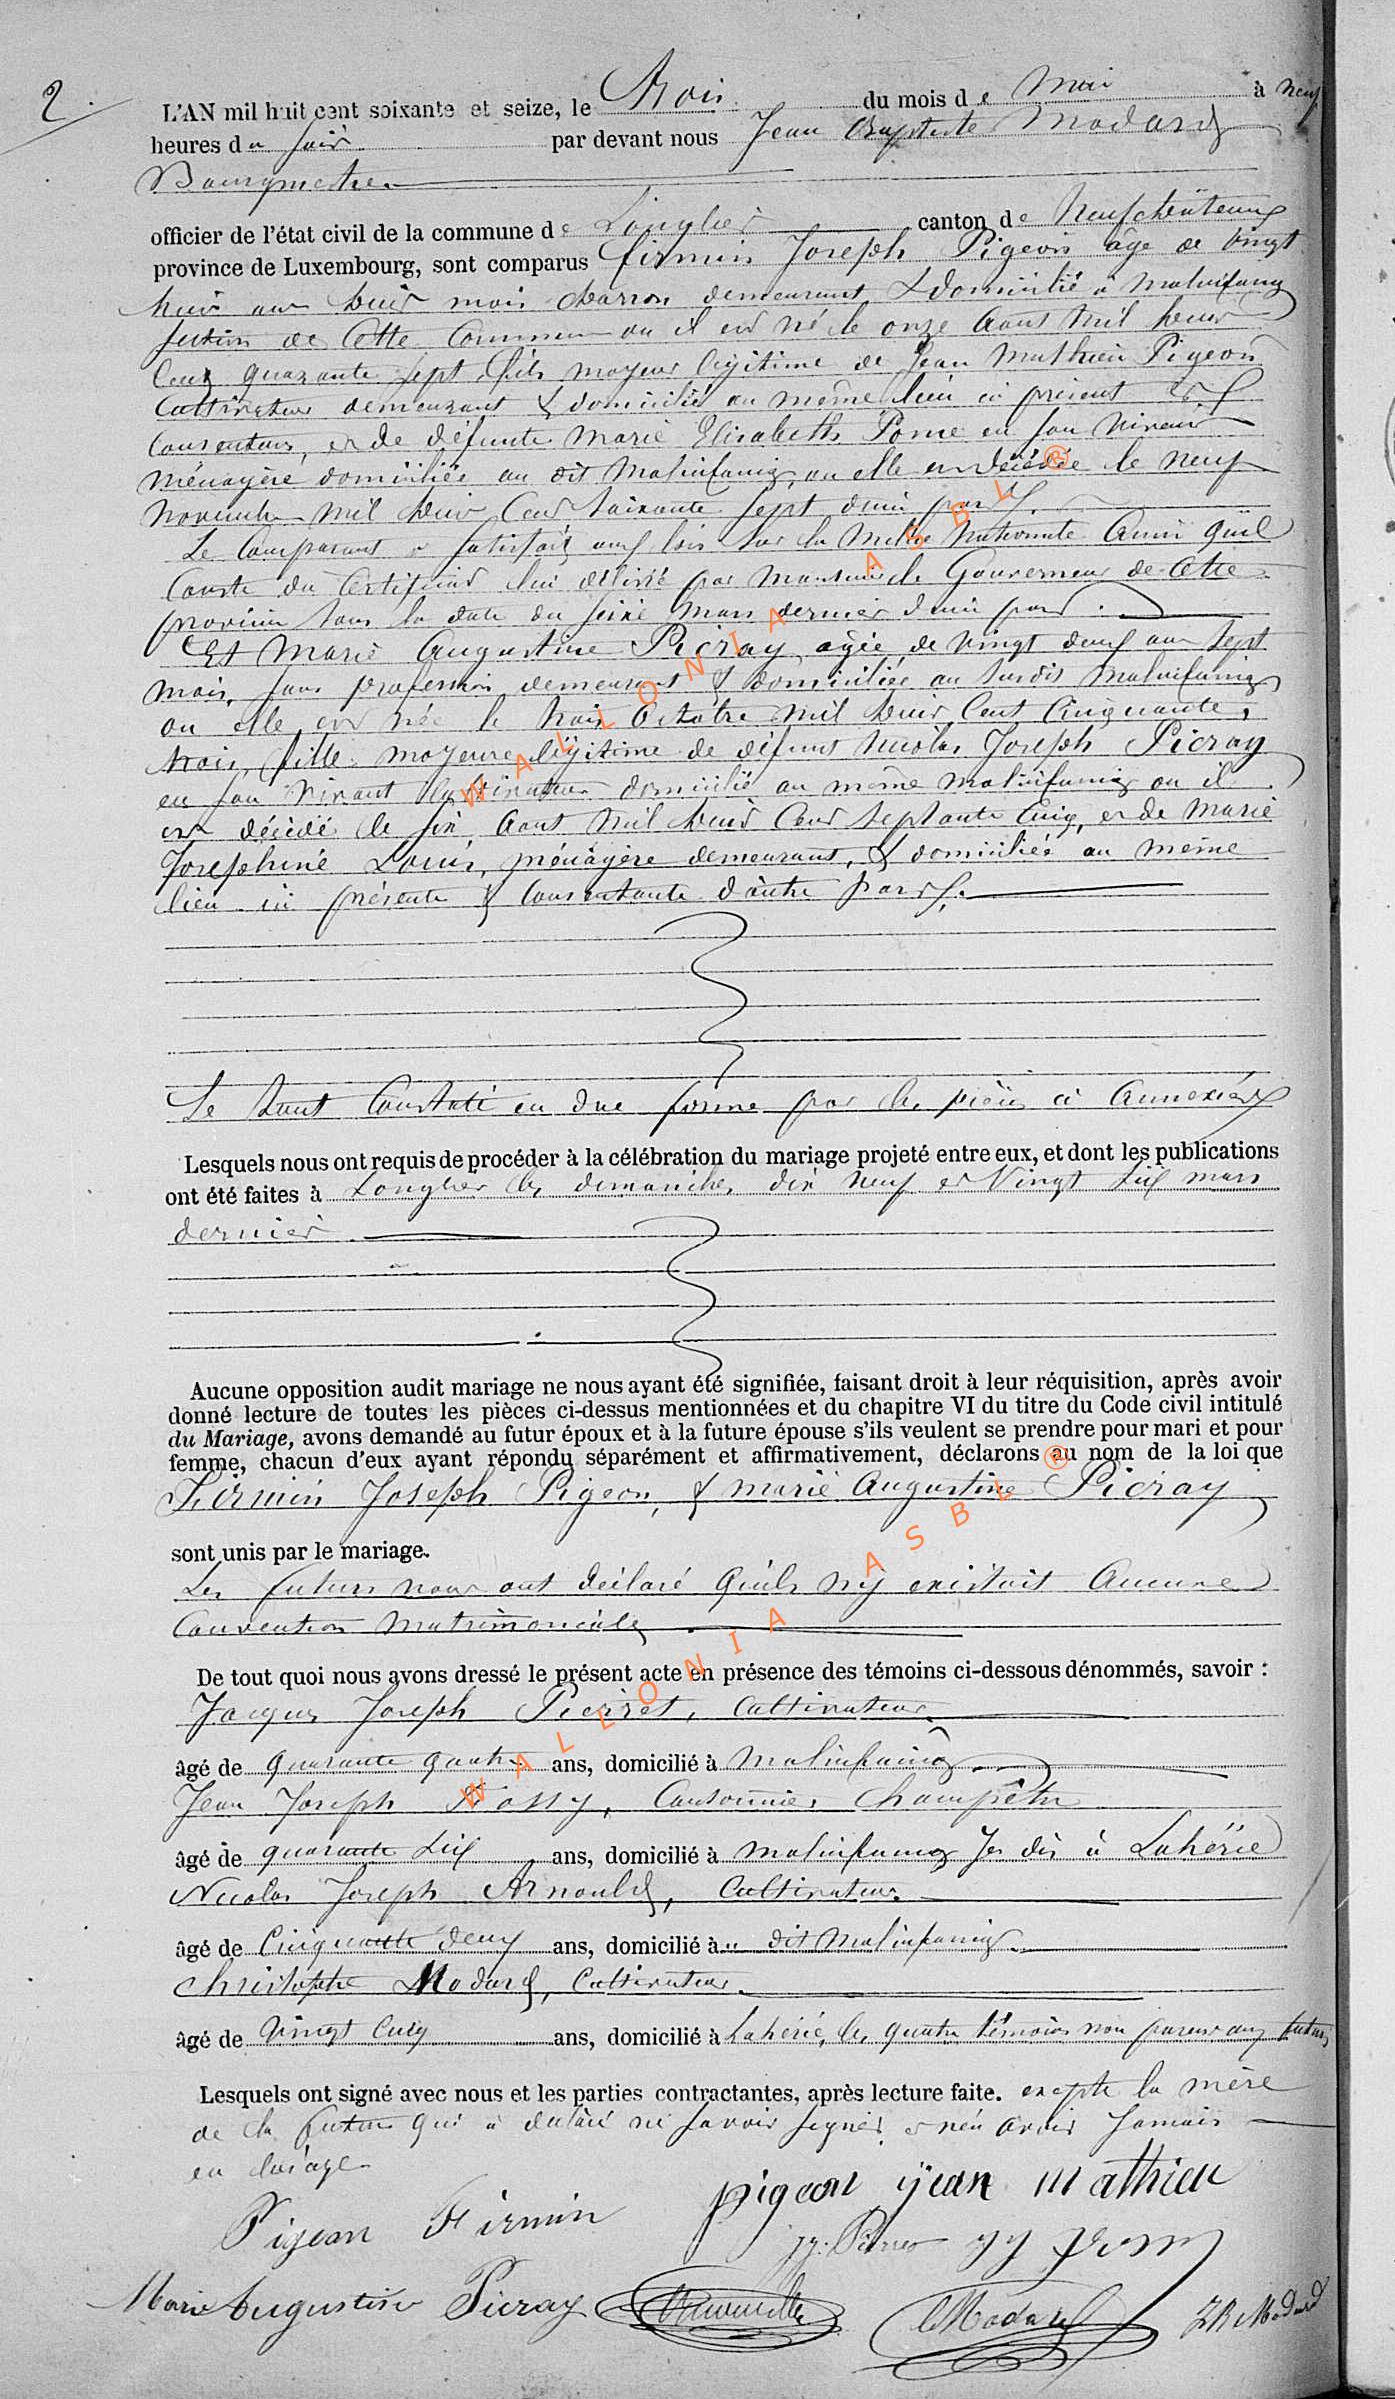 2.
L'AN mil huit cent soixante et seize, le Trois du mois de Mai à neuf
heures du soir par devant nous Jean Baptiste Modard
Bourgmestre
officier de l'état civil de la commune de Longlier canton de Neufchâteau
province de Luxembourg, sont comparus Firmin Joseph Pigeon âgé de vingt
huit ans huit mois charron demeurant & domicilié à Molinfaing
section de cette commune où il est né le onze Août mil huit
cent quarante sept, fils majeur légitime de Jean Mathieu Pigeon
cultivateur demeurant & domicilié au même lieu ci présent &
consentant, et de défunte Marie Elisabeth Pome en son vivant
ménagère domiciliée au dit Molinfaing, où elle est décédée le neuf
novembre mil huit cent soixante sept d'une part.
Le comparant a satisfait aux lois sur la Milice Nationale ainsi qu'il
conste du certificat lui délivré par Monsieur le Gouverneur de cette
province sous la date du seize mars dernier d'une part.
Et Marie Augustine Picray âgée de vingt deux ans sept
mois, sans profession demeurant & domiciliée au susdit Molinfaing
où elle est née le trois Octobre mil huit cent cinquante
trois, fille majeure légitime de défunt Nicolas Joseph Picray
en son vivant cultivateur domicilié au même Molinfaing où il
est décédé le six Août mil huit cent septante cinq, et de Marie
Josephine Louis, ménagère demeurant, & domiciliée au même
lieu ici présente & consentante d'autre part.
Le tout constaté en due forme par les pièces ci annexées
Lesquels nous ont requis de procéder à la célébration du mariage projeté entre eux, et dont les publications
ont été faites à Longlier les dimanches dix neuf et vingt six mars
dernier
Aucune opposition audit mariage ne nous ayant été signifiée, faisant droit à leur réquisition, après avoir
donné lecture de toutes les pièces ci-dessus mentionnées et du chapitre VI du titre du Code civil intitulé
du Mariage, avons demandé au futur époux et à la future épouse s'ils veulent se prendre pour mari et pour
femme, chacun d'eux ayant répondu séparément et affirmativement, déclarons au nom de la loi que
Firmin Joseph Pigeon, & Marie Augustine Picray
sont unis par le mariage.
Les futurs nous ont déclaré qu'ils n'y existait aucune
convention matrimoniale
De tout quoi nous avons dressé le présent acte en présence des témoins ci-dessous dénommés, savoir :
Jacques Joseph Pierret, cultivateur
âgé de quarante quatre ans, domicilié à Molinfaing
Jean Joseph Fossy, Cantonnier Champêtre
âgé de quarante six ans, domicilié à Molinfaing Je dis à Lahérie
Nicolas Joseph Arnould, Cultivateur
âgé de Cinquante deux ans, domicilié à au dit Molinfaing
Christophe Modard, Cultivateur
âgé de Vingt Cinq ans, domicilié à Lahérie, les quatre témoins non parens aux futurs
Lesquels ont signé avec nous et les parties contractantes, après lecture faite. excepté la mère
de la future qui a déclaré ne savoir signer et n'en avoir jamais
eu l'usage
pigeon jean mathieu
Pigeon Firmin
Marie Augustine Picray
C Modard
JB Modard
WALLONIA ASBL ®
WALLONIA ASBL ®